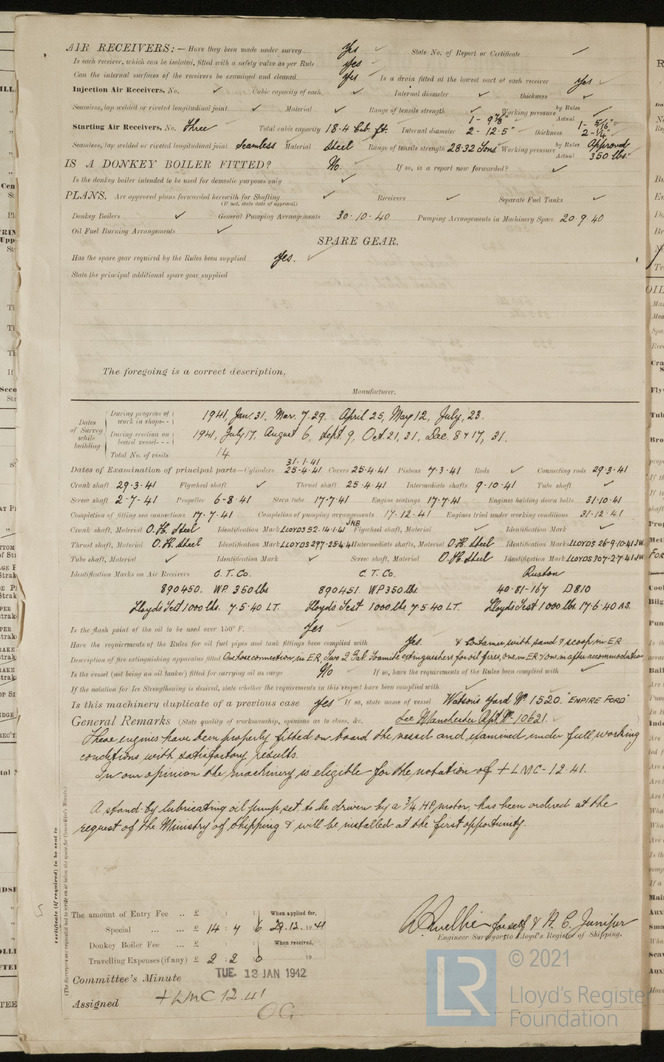 AIR RECEIVERS:— Have they been made under survey Yes ✓ State No. of Report or Certificate ✓
Is each receiver, which can be isolated, fitted with a safety valve as per Rule Yes ✓
Can the internal surfaces of the receivers be examined and cleaned Yes ✓ Is a drain fitted at the lowest part of each receiver Yes ✓
Injection Air Receivers, No. ✓ Cubic capacity of each ✓ Internal diameter ✓ thickness ✓
Seamless, lap welded or riveted longitudinal joint ✓ Material ✓ Range of tensile strength ✓ Working pressure by Rules Actual
1- 9⅞" 1- 5/16"
Starting Air Receivers, No. Three Total cubic capacity 18.4 cub. ft. Internal diameter 2- 12.5" thickness 2- ¼"
Seamless, lap welded or riveted longitudinal joint Seamless Material Steel Range of tensile strength 28-32 Tons Working pressure by Rules Approved Actual 350 lbs.
IS A DONKEY BOILER FITTED? No. If so, is a report now forwarded? ✓
Is the donkey boiler intended to be used for domestic purposes only ✓
PLANS. Are approved plans forwarded herewith for Shafting ✓ Receivers ✓ Separate Fuel Tanks ✓
(If not, state date of approval)
Donkey Boilers ✓ General Pumping Arrangements 30.10.40 Pumping Arrangements in Machinery Space 20.9.40
Oil Fuel Burning Arrangements ✓
SPARE GEAR.
Has the spare gear required by the Rules been supplied Yes. ✓
State the principal additional spare gear supplied
The foregoing is a correct description,
Manufacturer.
Dates of Survey while building
During progress of work in shops - - 1941, Jan 31, Mar. 7.29. April 25, May 12, July, 23.
During erection on board vessel - - - 1941, July 17, August 6, Sept 9, Oct. 21, 31, Dec. 8 & 17, 31.
Total No. of visits 14.
31.1.41
Dates of Examination of principal parts—Cylinders 25.4.41 Covers 25.4.41 Pistons 7.3.41 Rods ✓ Connecting rods 29.3.41
Crank shaft 29.3.41 Flywheel shaft ✓ Thrust shaft 25.4.41 Intermediate shafts 9.10.41 Tube shaft ✓
Screw shaft 2-7-41 Propeller 6-8-41 Stern tube 17-7-41 Engine seatings 17-7-41 Engines holding down bolts 31.10.41
Completion of fitting sea connections 17.7.41 Completion of pumping arrangements 17.12.41 Engines tried under working conditions 31.12.41
Crank shaft, Material O.H. Steel Identification Mark Flywheel shaft, Material ✓ Identification Mark ✓
Thrust shaft, Material O.H. Steel Identification Mark LLOYDS 297.25.4.41 Intermediate shafts, Material O.H. Steel Identification Marks
Tube shaft, Material ✓ Identification Mark ✓ Screw shaft, Material O.H. Steel Identification Mark
Identification Marks on Air Receivers C.T.Co. C.T.Co. Ruston
890450. WP 350 lbs 890451. WP 350 lbs 40-81-167 D810
Lloyds Test 1000 lbs. 7.5.40 LT. Lloyds Test 1000 lbs 7.5.40 LT. Lloyds Test 1000 lbs 17.6.40
Is the flash point of the oil to be used over 150° F. Yes
Have the requirements of the Rules for oil fuel pipes and tank fittings been complied with Yes & Container with sand & scoop in ER
Description of fire extinguishing apparatus fitted One hose connection in E.R. Two 2 Gal. Foamite extinguishers for oil fires, one in ER & one in after accommodation
Is the vessel (not being an oil tanker) fitted for carrying oil as cargo No If so, have the requirements of the Rules been complied with ✓
If the notation for Ice Strengthening is desired, state whether the requirements in this respect have been complied with ✓
Is this machinery duplicate of a previous case Yes If so, state name of vessel Watsons Yard No. 1520. "EMPIRE FORD"
General Remarks (State quality of workmanship, opinions as to class, &c. See Manchester Rpt. No. 10621.
These engines have been properly fitted on board the vessel and examined under full working
conditions with satisfactory results.
In our opinion the machinery is eligible for the notation of + LMC - 12.41.
A stand-by lubricating oil pump set to be driven by a ¾ HP motor, has been ordered at the
request of the Ministry of Shipping & will be installed at the first opportunity.
The amount of Entry Fee .. £ : : When applied for,
Special ... ... £ 14 : 4 : 6 29.12.1941
Donkey Boiler Fee ... £ : : When received,
Travelling Expenses (if any) £ 2 : 2 : 0 19
for self & H. C. Juniper
Engineer Surveyor to Lloyd's Register of Shipping.
Committee's Minute TUE. 13 JAN 1942
Assigned + LMC 12.41
OG
© 2021
LR
Lloyd's Register
Foundation